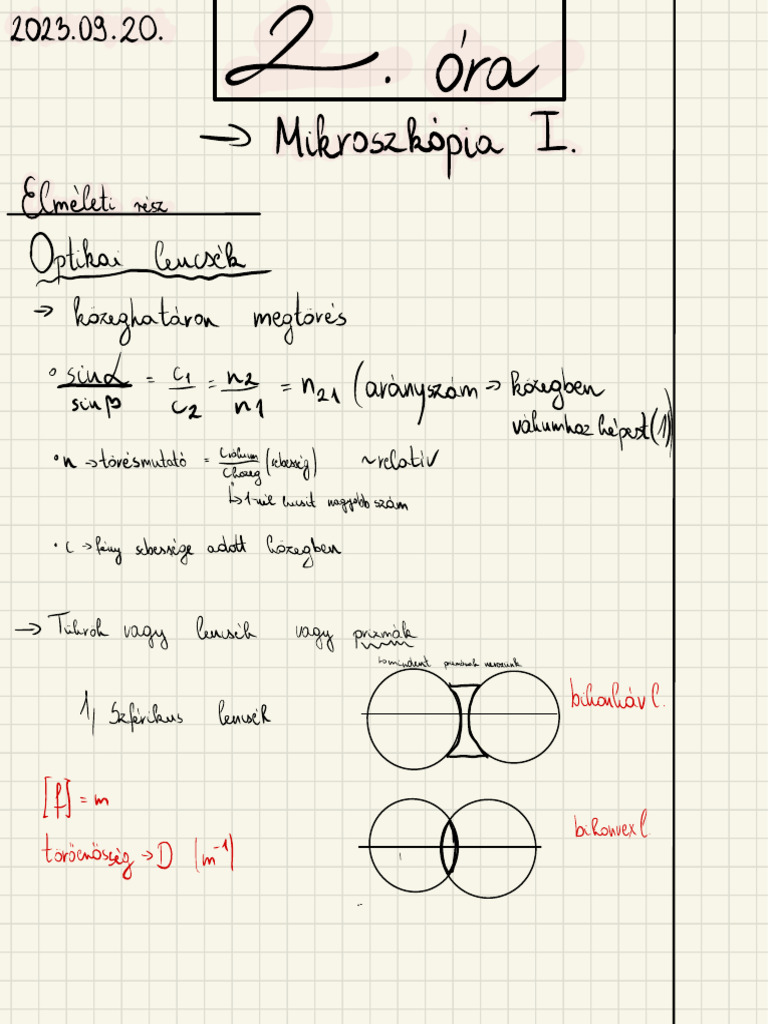 2023.09.20.
2. óra
→ Mikroszkópia I.
Elméleti rész
Optikai lencsék
→ közeghatáron megtörés
• sinα/sinβ = c1/c2 = n2/n1 = n21 (arányszám → közegben
vákumhoz képest (1))
• n → törésmutató = cvákum/cközeg (sebesség) ~relatív
↳ 1-nél kicsit nagyobb szám
• c → fény sebessége adott közegben
→ Tükrök vagy lencsék vagy prizmák
prizmának nevezünk
1, Szférikus lencsék
bikonkáv l.
[f] = m
bikonvex l.
törőerősség → D (m⁻¹)